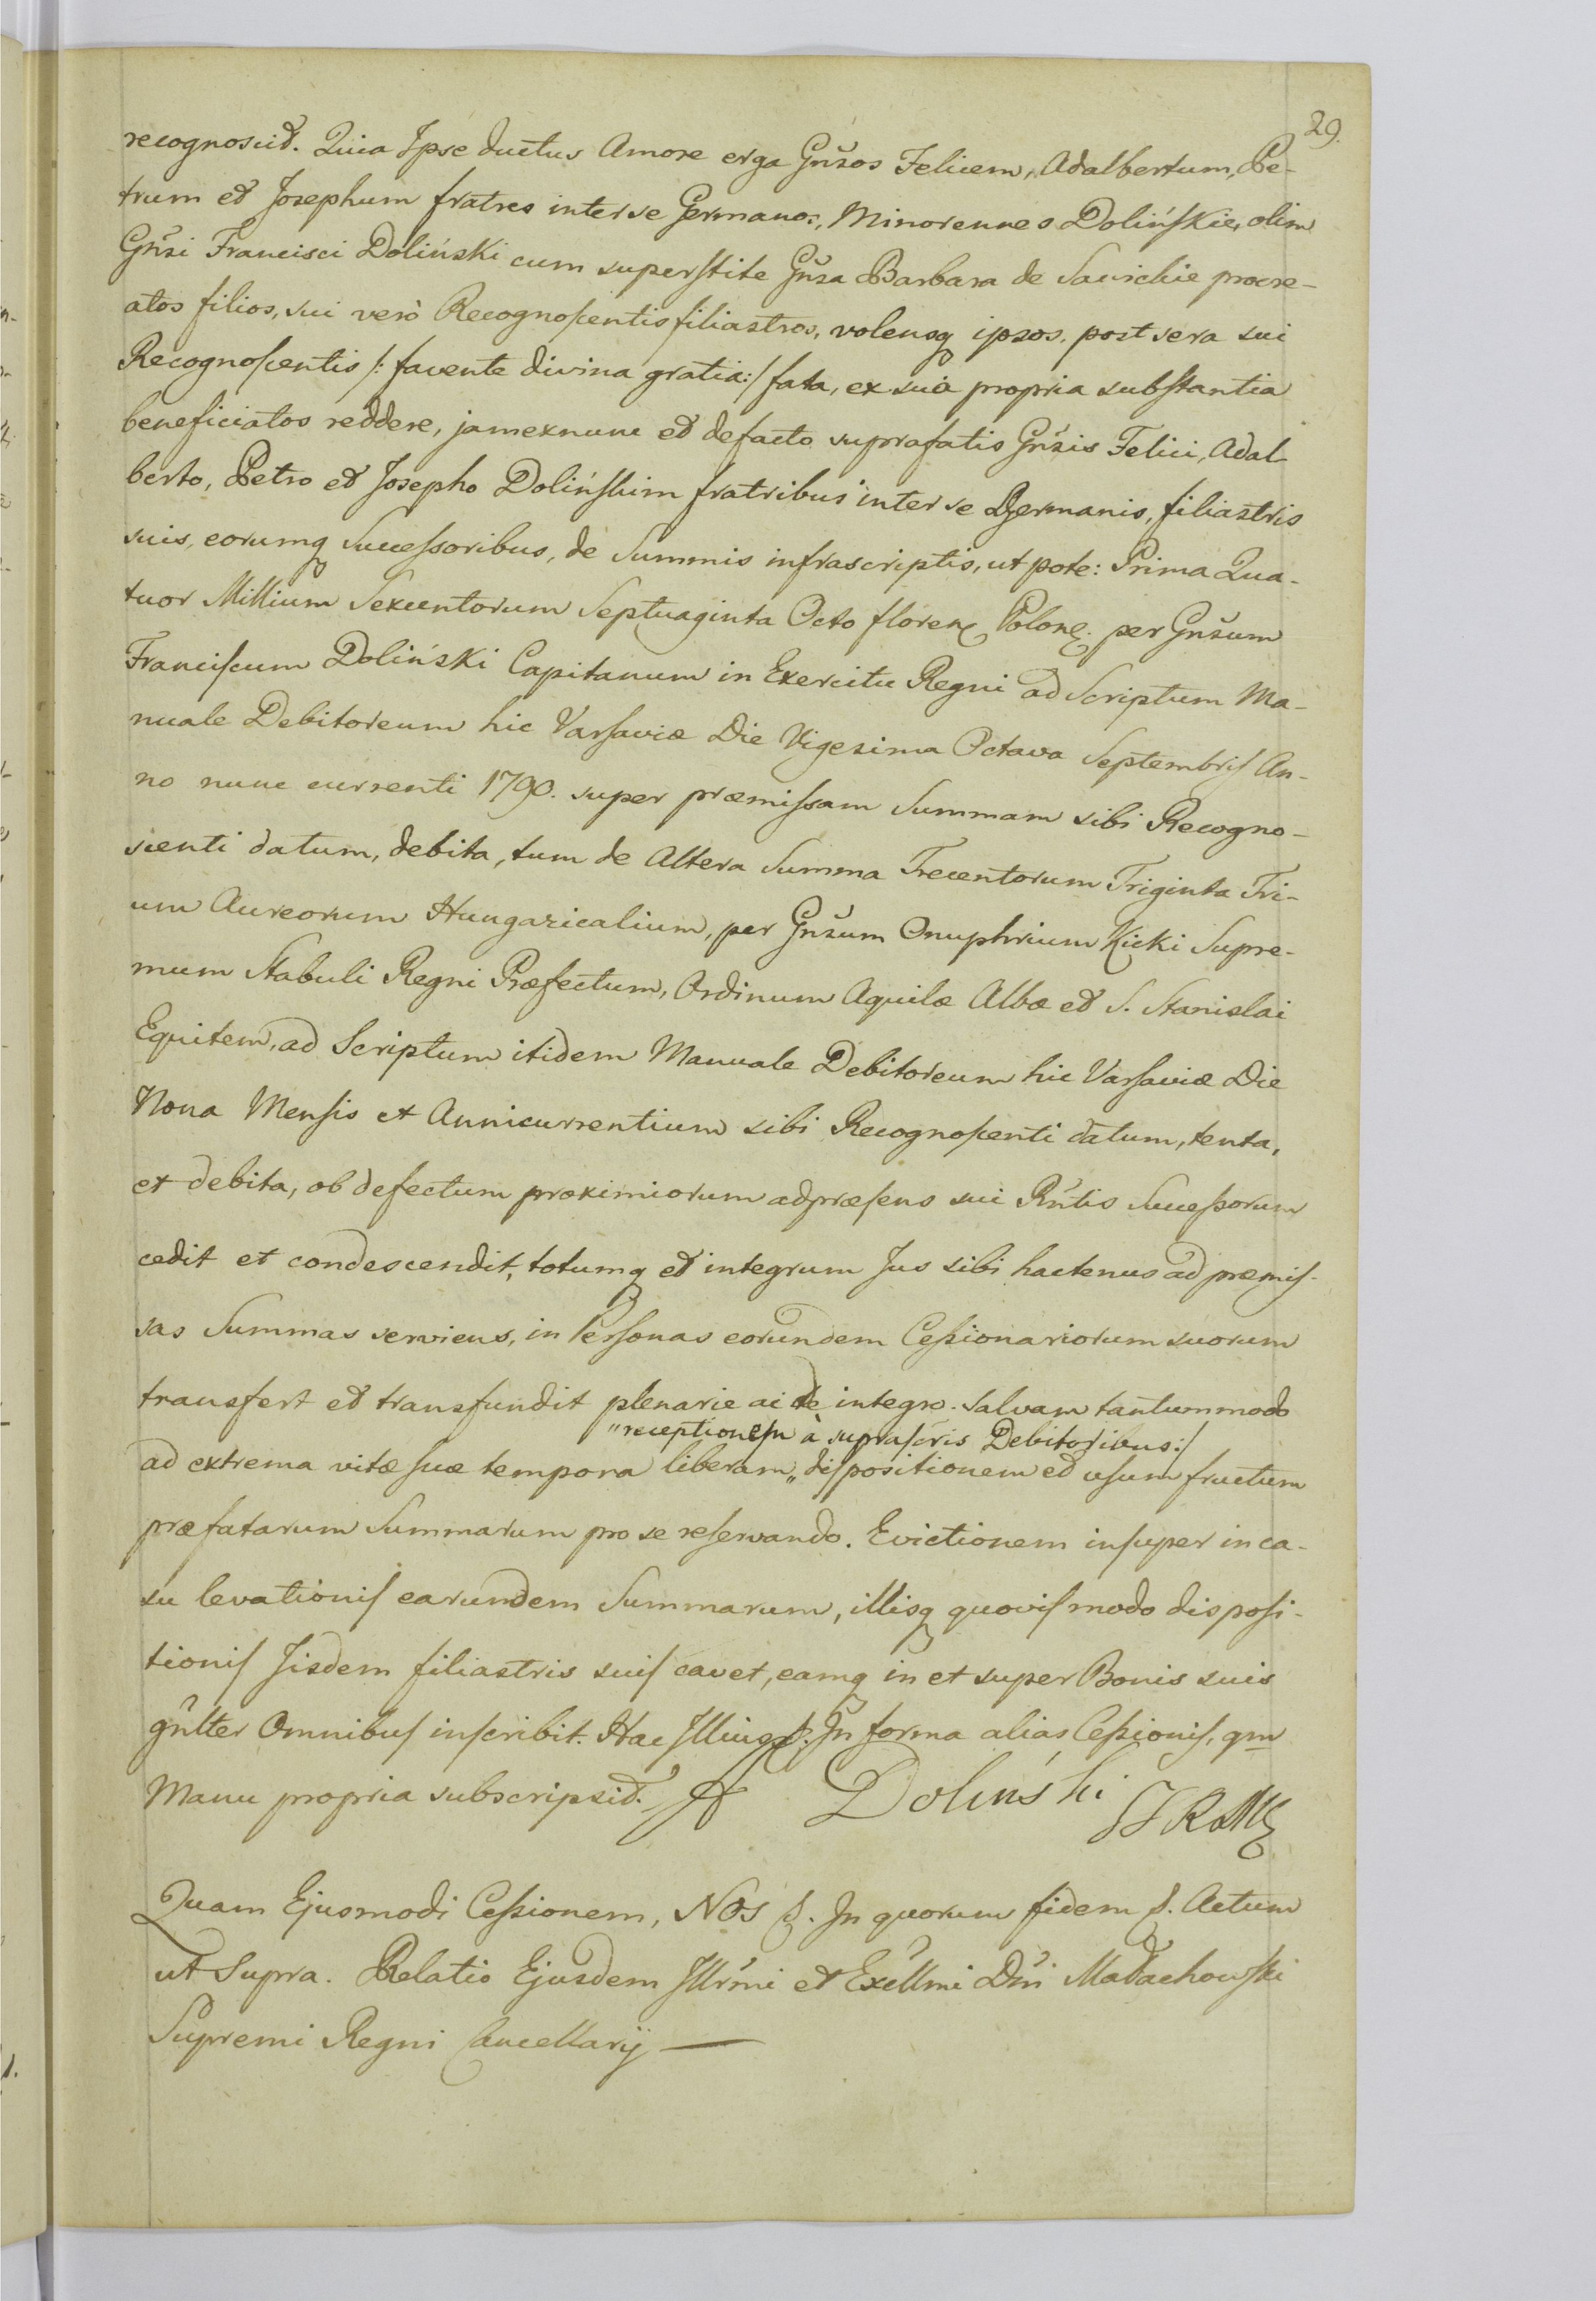 29.
recognoscit. Quia Ipse ductus Amore erga Gnŝos Felicem, Adalbertum, Pe-
trum et Josephum fratres inter se Germanos, Minorennes Dolińskie, olim
Gnŝi Francisci Doliński cum superstite Gnŝa Barbara de Sawickie procre-
atos filios, sui verò Recognoscentis filiastros, volensq ipsos post sera sui
Recognoscentis /: favente divina gratia :/ fata, ex sua propria substantia
beneficiatos reddere, jam exnunc et defacto suprafatis Gnŝis Felici, Adal-
berto, Petro et Josepho Dolińskim fratribus inter se Germanis, filiastris
suis, eorumq Successoribus, de Summis infrascriptis, ut pote: Prima Qua-
tuor Millium Sexcentorum Septuaginta Octo floren Polon. per Gnŝum
Franciscum Doliński Capitanum in Exercitu Regni ad Scriptum Ma-
nuale Debitoreum hic Varsaviæ Die Vigesima Octava Septembris An-
no nunc currenti 1790. super præmissam Summam sibi Recogno-
scenti datum, debita, tum de Altera Summa Trecentorum Triginta Tri-
um Aureorum Hungaricalium, per Gnŝum Onuphrium Kicki Supre-
mum Stabuli Regni Præfectum, Ordinum Aquilæ Albæ et S. Stanislai
Equitem, ad Scriptum itidem Manuale Debitoreum hic Varsaviæ Die
Nona Mensis et Anni currentium sibi Recognoscenti datum, tenta,
et debita, ob defectum proximiorum ad præsens sui Rñtis Successorum
cedit et condescendit, totumq et integrum Jus sibi hactenus ad præmis-
sas Summas serviens, in Personas eorundem Cessionariorum suorum
transfert et transfundit plenarie ac de integro. Salvam tantummodo
"receptionem à suprascris Debitoribus :/
ad extrema vitæ suæ tempora liberam „ dispositionem et usum fructum
præfatarum Summarum pro se reservando. Evictionem insuper in ca-
su levationis earundem Summarum, illisq quovis modo disposi-
tionis Iisdem filiastris suis cavet, eamq in et super Bonis suis
gñlter Omnibus inscribit. Hac Illius p. In forma alias Cessionis, qm
Manu propria subscripsit. Doliński
Quam Ejusmodi Cessionem, NOS p. In quorum fidem p. Actum
ut Supra. Relatio Ejusdem Illrmi et Excllmi Dñi Małachowski
Supremi Regni Cancellarij —